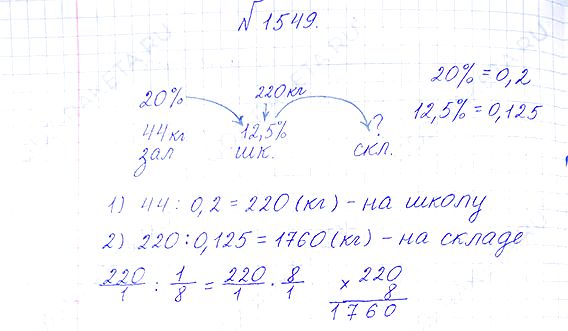 №1549.
20% = 0,2
12,5% = 0,125
20% 220кг
44кг 12,5% ?
зал шк. скл.
1) 44 : 0,2 = 220 (кг) – на школу
2) 220 : 0,125 = 1760 (кг) – на складе
220/1 : 1/8 = 220/1 · 8/1
× 220
8
1760